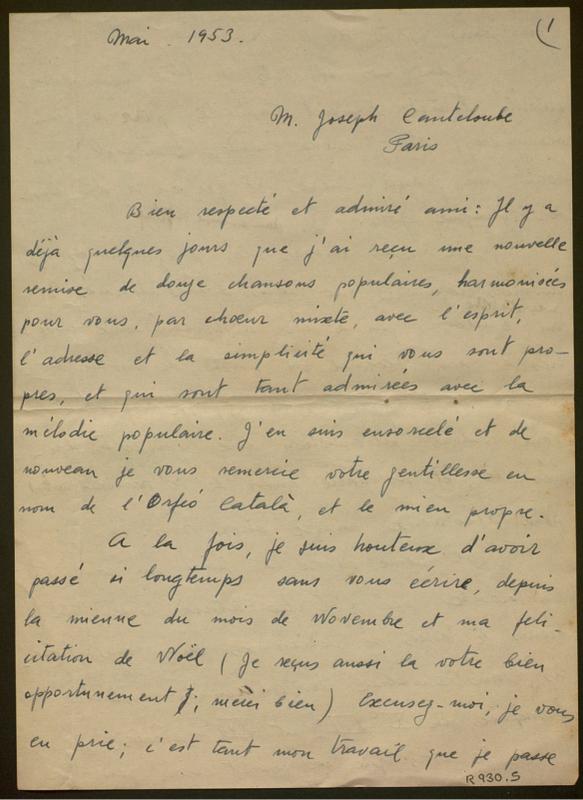 Mai . 1953.
(1
M. Joseph Canteloube
Paris
Bien respecté et admiré ami: Il y a
déjà quelques jours que j'ai reçu une nouvelle
remise de douze chansons populaires, harmonisées
pour vous, par chœur mixte, avec l'esprit,
l'adresse et la simplicité qui vous sont pro-
pres, et qui sont tant admirées avec la
mélodie populaire. J'en suis ensorcelé et de
nouveau je vous remercie votre gentillesse en
nom de l'Orfeó Català, et le mien propre.
A la fois, je suis honteux d'avoir
passé si longtemps sans vous écrire, depuis
la mienne du mois de Novembre et ma feli-
citation de Noël (Je reçus aussi la votre bien
opportunement ; merci bien) Excusez-moi, je vous
en prie; c'est tant mon travail que je passe
R 930.S